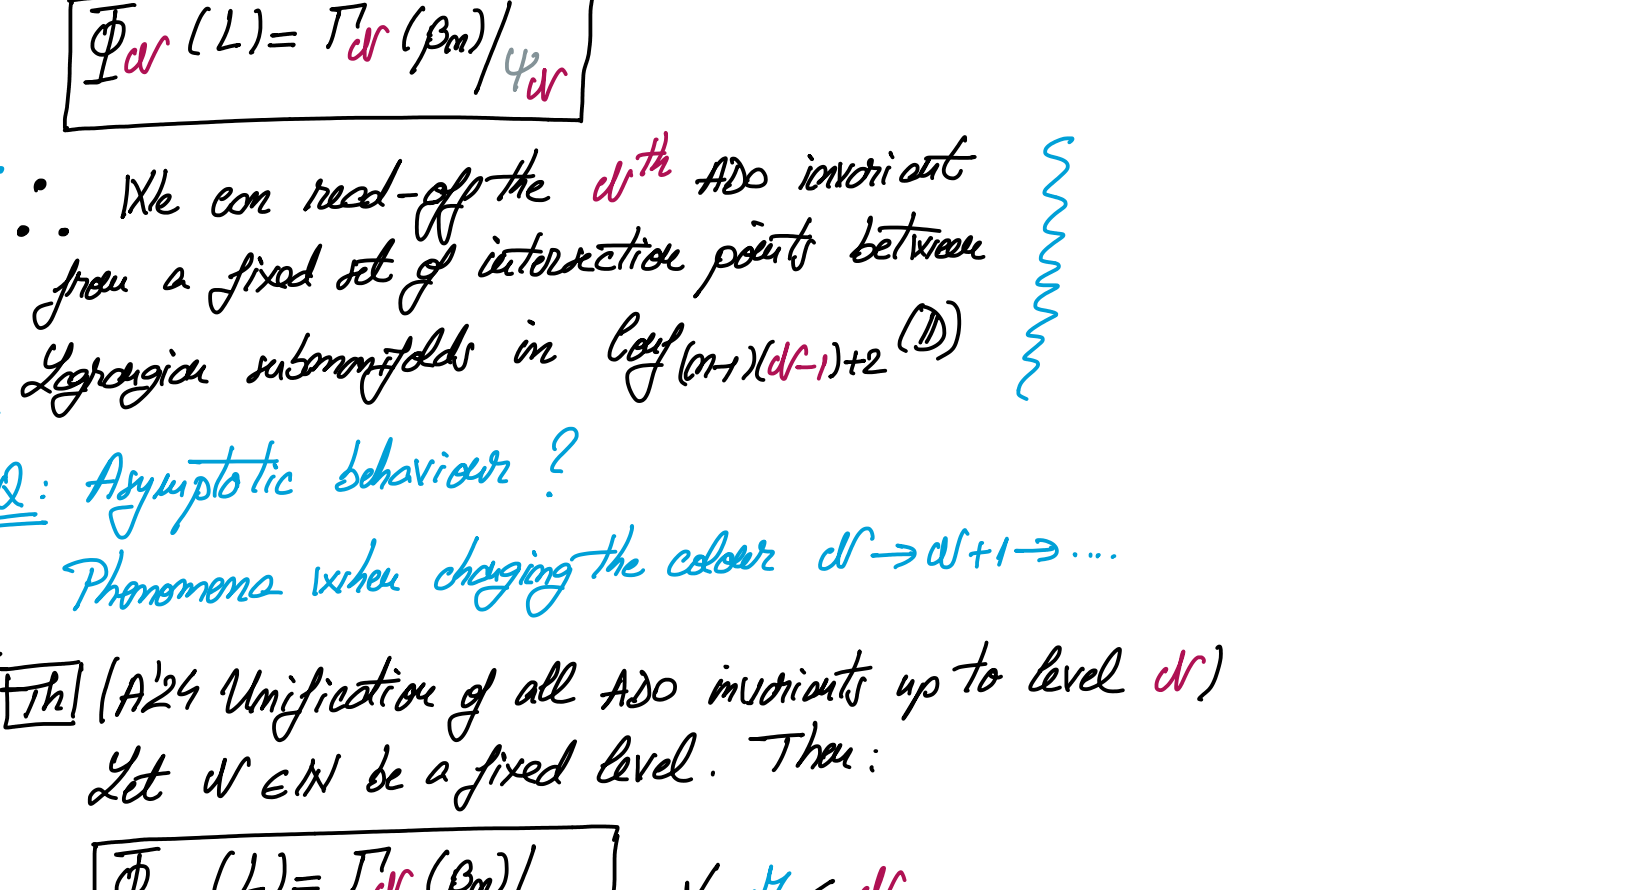 Φ_𝒩 (L) = Γ_𝒩 (βₙ) / ψ_𝒩
∴ We can read-off the 𝒩ᵗʰ ADO invariant
from a fixed set of intersection points between
Lagrangian submanifolds in Conf_{(n-1)(𝒩-1)+2} (𝔻)
Q: Asymptotic behaviour?
Phenomena when changing the colour 𝒩 → 𝒩+1 → ....
Th (A'24 Unification of all ADO invariants up to level 𝒩)
Let 𝒩 ∈ ℕ be a fixed level. Then:
Φ (L) = Γ_𝒩 (βₙ) /